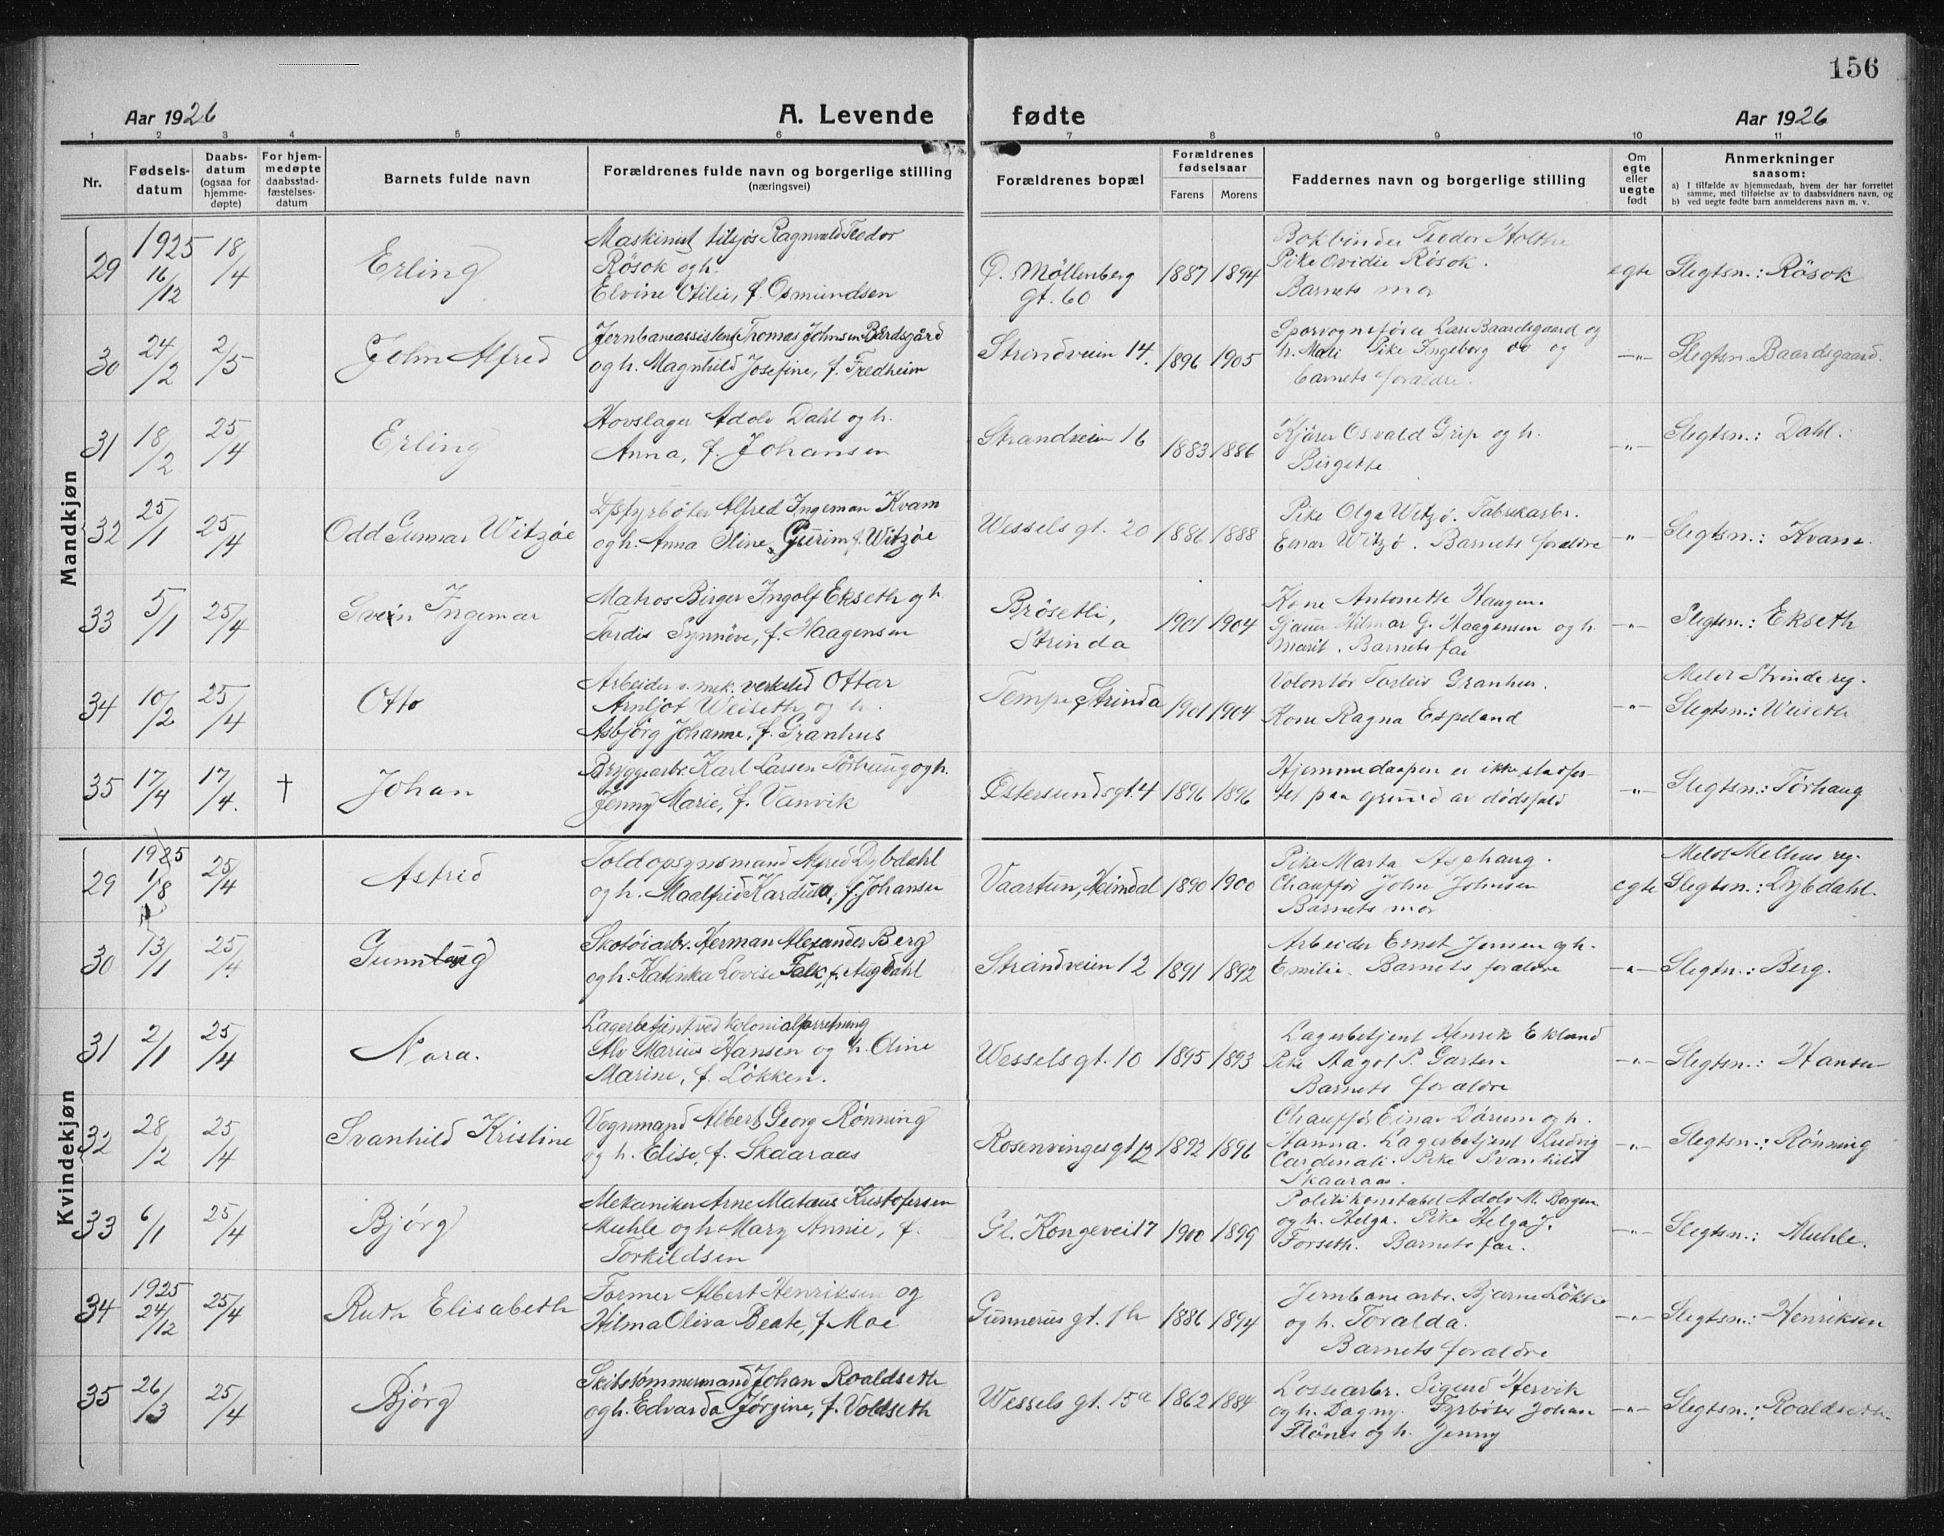 156
Aar 1926 A. Levende fødte Aar 1926
1 2 3 4 5 6 7 8 9 10 11
Nr. Fødsels-datum Daabs-datum (ogsaa for hjemme-døpte) For hjem-medøpte daabsstad-fæstelses-datum Barnets fulde navn Forældrenes fulde navn og borgerlige stilling (næringsvei) Forældrenes bopæl Forældrenes fødselsaar Farens Morens Faddernes navn og borgerlige stilling Om egte eller uegte født Anmerkninger saasom:
a) I tilfælde av hjemmedaab, hvem der har forrettet samme, med tilføielse av to daabsvidners navn, og
b) ved uegte fødte barn anmelderens navn m. v.
Mandkjøn
29 1925 16/12 18/4 Erling Maskinist tilsjøs Ragnvald Teodor Røsok og h. Elvine Otilie, f. Osmundsen Ø. Möllenberg gt. 60 1887 1894 Bokbinder Teodor Holthe Pike Ovidie Røsok. Barnets mor egte Slegtsn.: Røsok
30 24/2 2/5 John Alfred Jernbaneassistent Thomas Johnsen Bårdsgård og h. Magnhild Josefine, f. Fredheim Strandveien 14. 1896 1905 Sporvognsfører Lars Baardsgaard og h. Mali Pike Ingeborg do og barnets forældre. -"- Slegtsn. Baardsgaard.
31 18/2 25/4 Erling Hovslager Adolv Dahl og h. Anna, f. Johansen Strandveien 16 1883 1886 Kjører Osvald Grip og h. Birgitte -"- Slegtsn.: Dahl.
32 25/1 25/4 Odd Gunnar Witzøe Alfred Ingeman Kvam og h. Anna Oline Gurine f. Witzøe Wessels gt. 20 1886 1888 Pike Olga Witzø. Fabrikarbr. Einar Witzø. Barnets forældre -"- Slegtsn.: Kvam.
33 5/1 25/4 Svein Ingemar Matros Birger Ingolf Ekseth og h Tordis Synnöve, f. Haagensen Brøsetli, Strinda 1901 1904 Kone Antonette Haugen. Hilmar G. Haagensen og h. Marit. Barnets far -"- Slegtsn.: Ekseth
34 10/2 25/4 Otto Arbeider v. mek. verksted Ottar Arnljot Weiseth og h. Asbjörg Johanne, f. Granhus Tempe Strinda 1901 1904 Volontör Torleiv Granhus. Kone Ragna Espeland -"- Meldt Strinde reg. Slegtsn.: Weiseth
35 17/4 17/4. † Johan Bryggearbr. Karl Larsen Törhaug og h. Jenny Marie, f. Vanvik Østersundsgt. 4 1896 1896 Hjemmedaapen er ikke stadfæstet paa grund av dödsfald -"- Slegtsn.: Törhaug
Kvindekjøn
29 1925 1/8 25/4 Astrid Toldopsynsmand Alfred Dybdahl og h. Maalfrid f. Johansen Vaartun, Heimdal 1890 1900 Pike Marta Asphaug. Chauffør John Johnsen Barnets mor egte Meldt Melhus reg. Slegtsn.: Dybdahl.
30 13/1 25/4 Gunnlaug Skotöiarbr. Herman Alexander Berg og h. Katinka Lovise Falk, f. Augdahl Strandveien 12 1891 1892 Arbeider Ernst Jensen og h. Emilie. Barnets forældre -"- Slegtsn.: Berg.
31 2/1 25/4 Nora. Lagerbetjent ved kolonialforretning Alv Marius Hansen og h. Oline Marine, f. Løkken. Wessels gt. 10 1895 1893 Lagerbetjent Henrik Eklund Pike Aagot P. Garten Barnets forældre -"- Slegtsn.: Hansen
32 28/2 25/4 Svanhild Kristine Vognmand Albert Georg Rønning og h. Elise, f. Skaaraas Rosenvinges gt 12 1892 1896 Chauffør Einar Dörum og h. Hanna. Lagerbetjent Ludvig Cardinali. Pike Svanhild Skaaraas. -"- Slegtsn.: Rønning
33 6/1 25/4 Bjørg Mekaniker Arne Mataus Kristofersen Muhle og h Mary Annie, f. Torkildsen Gl. Kongevei 17 1900 1899 Politikonstabel Adolv M. Bergen og h. Helga. Pike Helga J. Forseth. Barnets far. -"- Slegtsn.: Muhle.
34 1925 24/12 25/4 Ruth Elisabeth Former Albert Henriksen og Hilma Oliva Beate, f. Moe Gunnerus gt. 1b 1886 1894 Jernbanearbr. Bjarne Løkke og h. Toralda. Barnets forældre -"- Slegtsn.: Henriksen
35 26/3 25/4 Bjørg Skibstömmermand Johan Roaldseth og h. Edvarda Jørgine, f. Voldseth Wessels gt. 15a 1862 1884 Lossearbr. Sigurd Hervik og h. Dagny. Fyrbøter Johan Flönes og h. Jenny -"- Slegtsn.: Roaldseth.